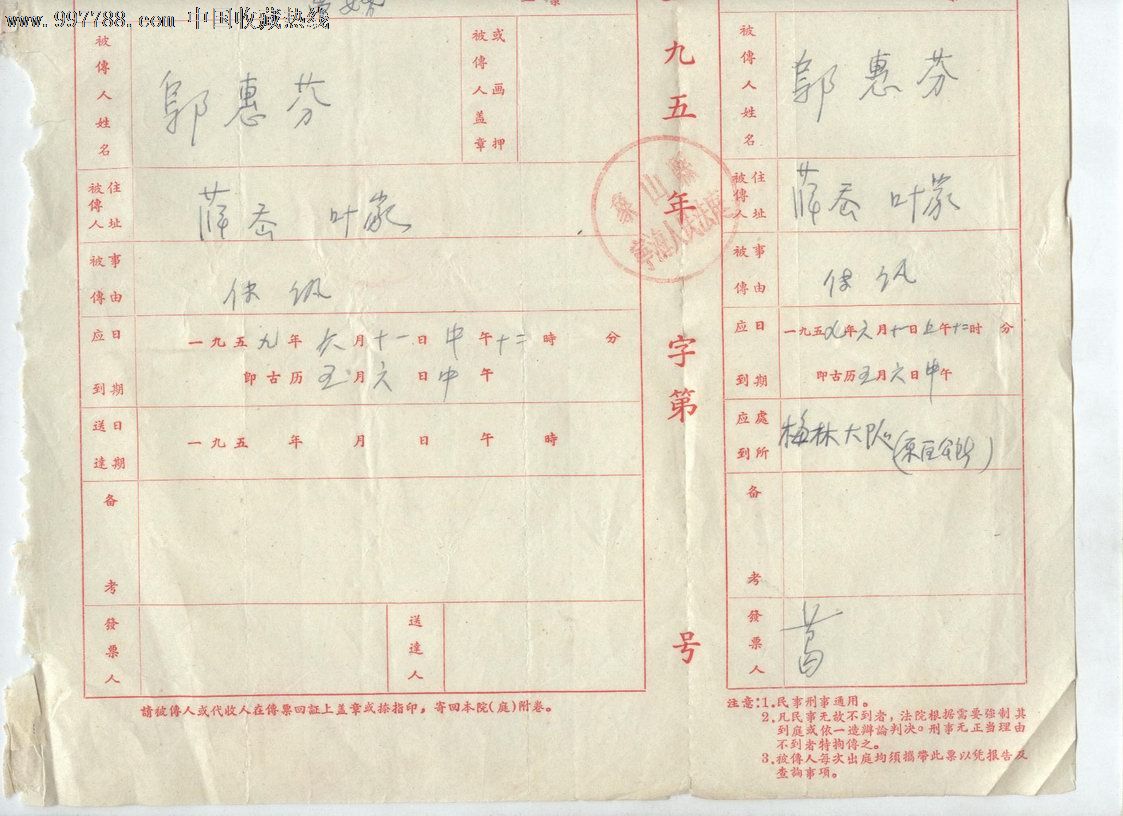 www.997788.com 中国收藏热线
被傳人姓名
郭惠芬
被傳人盖章
或画押
被傳人
住址
薛岙 叶家
被傳
事由
应到
日期
一九五九年六月十一日中午十二時 分
即古历五月六日中午
送達
日期
一九五 年 月 日 午 時
备考
發票人
送達人
請被傳人或代收人在傳票回証上盖章或捺指印，寄回本院(庭)附卷。
九五 年 字第 号
象山縣
寧海人民法庭
被傳人姓名
郭惠芬
被傳人
住址
薛岙 叶家
被傳
事由
应到
日期
一九五九年六月十一日上午十二時 分
即古历五月六日中午
应到
處所
梅林大队
备考
發票人
葛
注意:1.民事刑事通用。
2.凡民事无故不到者，法院根据需要強制其
到庭或依一造辯論判决。刑事无正当理由
不到者特拘傳之。
3.被傳人每次出庭均須攜帶此票以凭报告及
查詢事項。